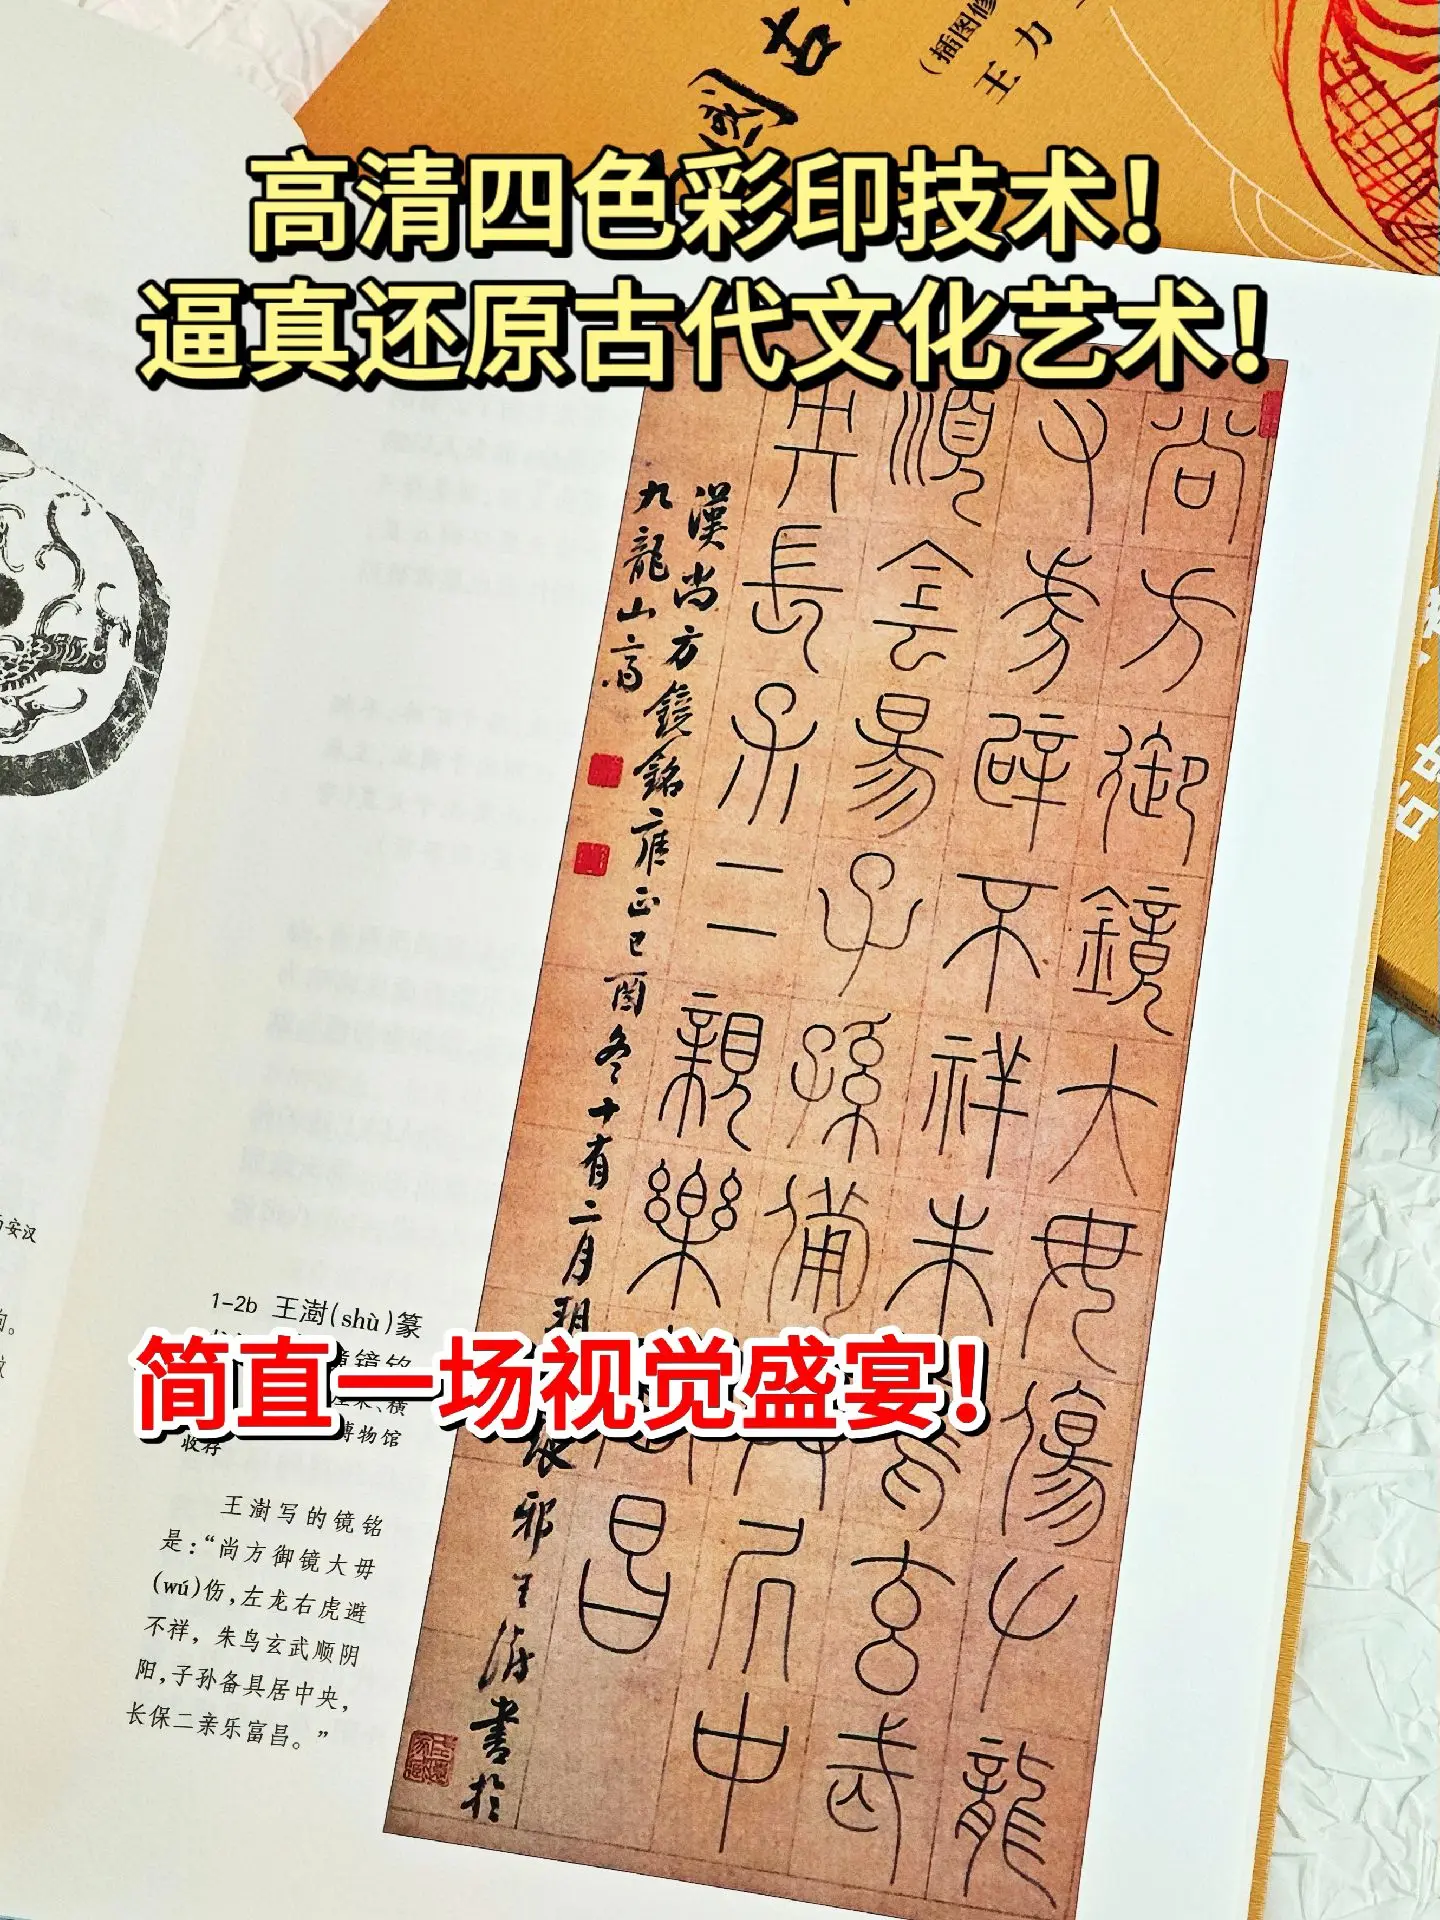 (插图修
王力
國古
高清四色彩印技术！
逼真还原古代文化艺术！
尚方御鏡大毋傷𠂇龍
又虎辟不祥朱鳥玄武
順侌昜子孫備具凥中
央長保二親樂富昌
漢尚方鏡銘雍正己酉冬十有二月琅邪王澍書於
九龍山齋
西安汉
1-2b 王澍(shù)篆
镜铭
博物馆
收存
简直一场视觉盛宴！
王澍写的镜铭
是：“尚方御镜大毋
(wú)伤，左龙右虎避
不祥，朱鸟玄武顺阴
阳，子孙备具居中央，
长保二亲乐富昌。”